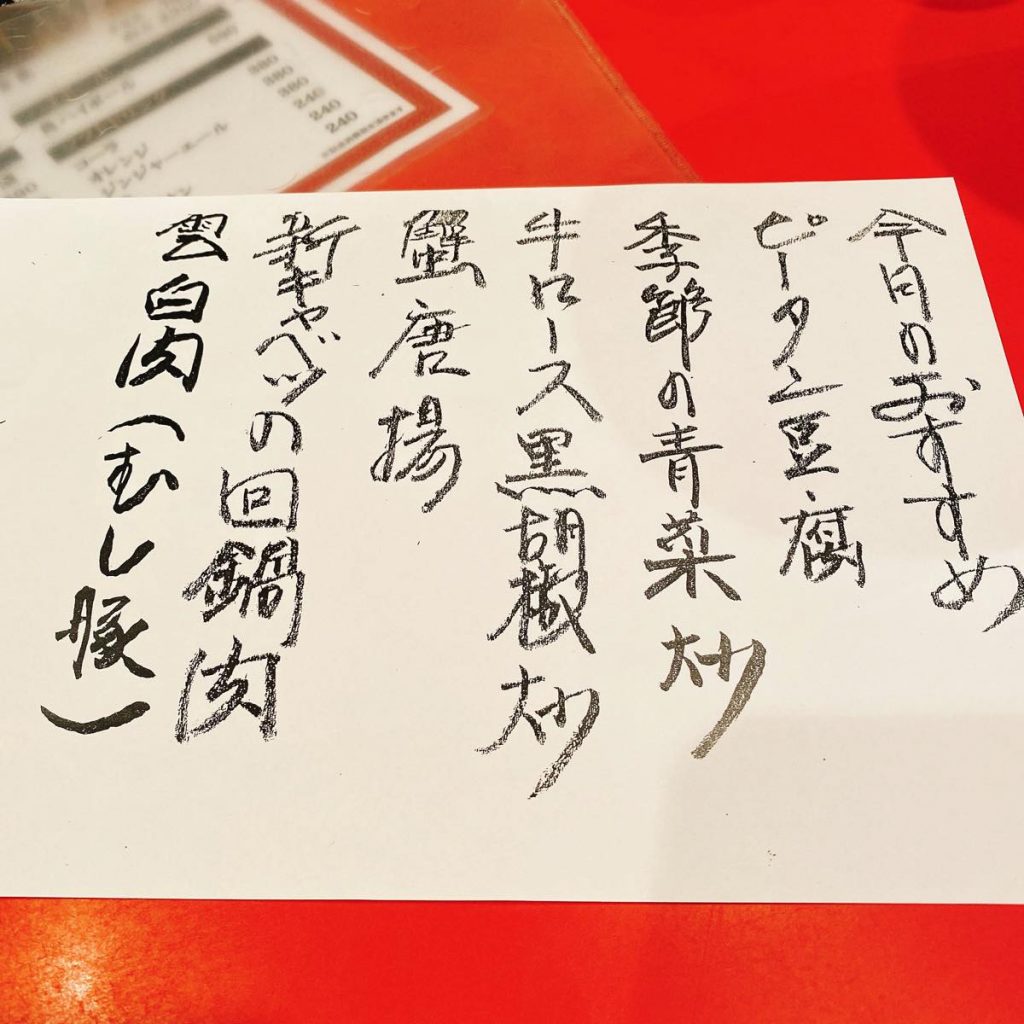 今日のおすすめ
ピータン豆腐
季節の青菜炒
牛ロース黒胡椒炒
蟹唐揚
新キャベツの回鍋肉
雲白肉(むし豚)
380
380
240
240
240
コーラ
オレンジ
ジンジャーエール